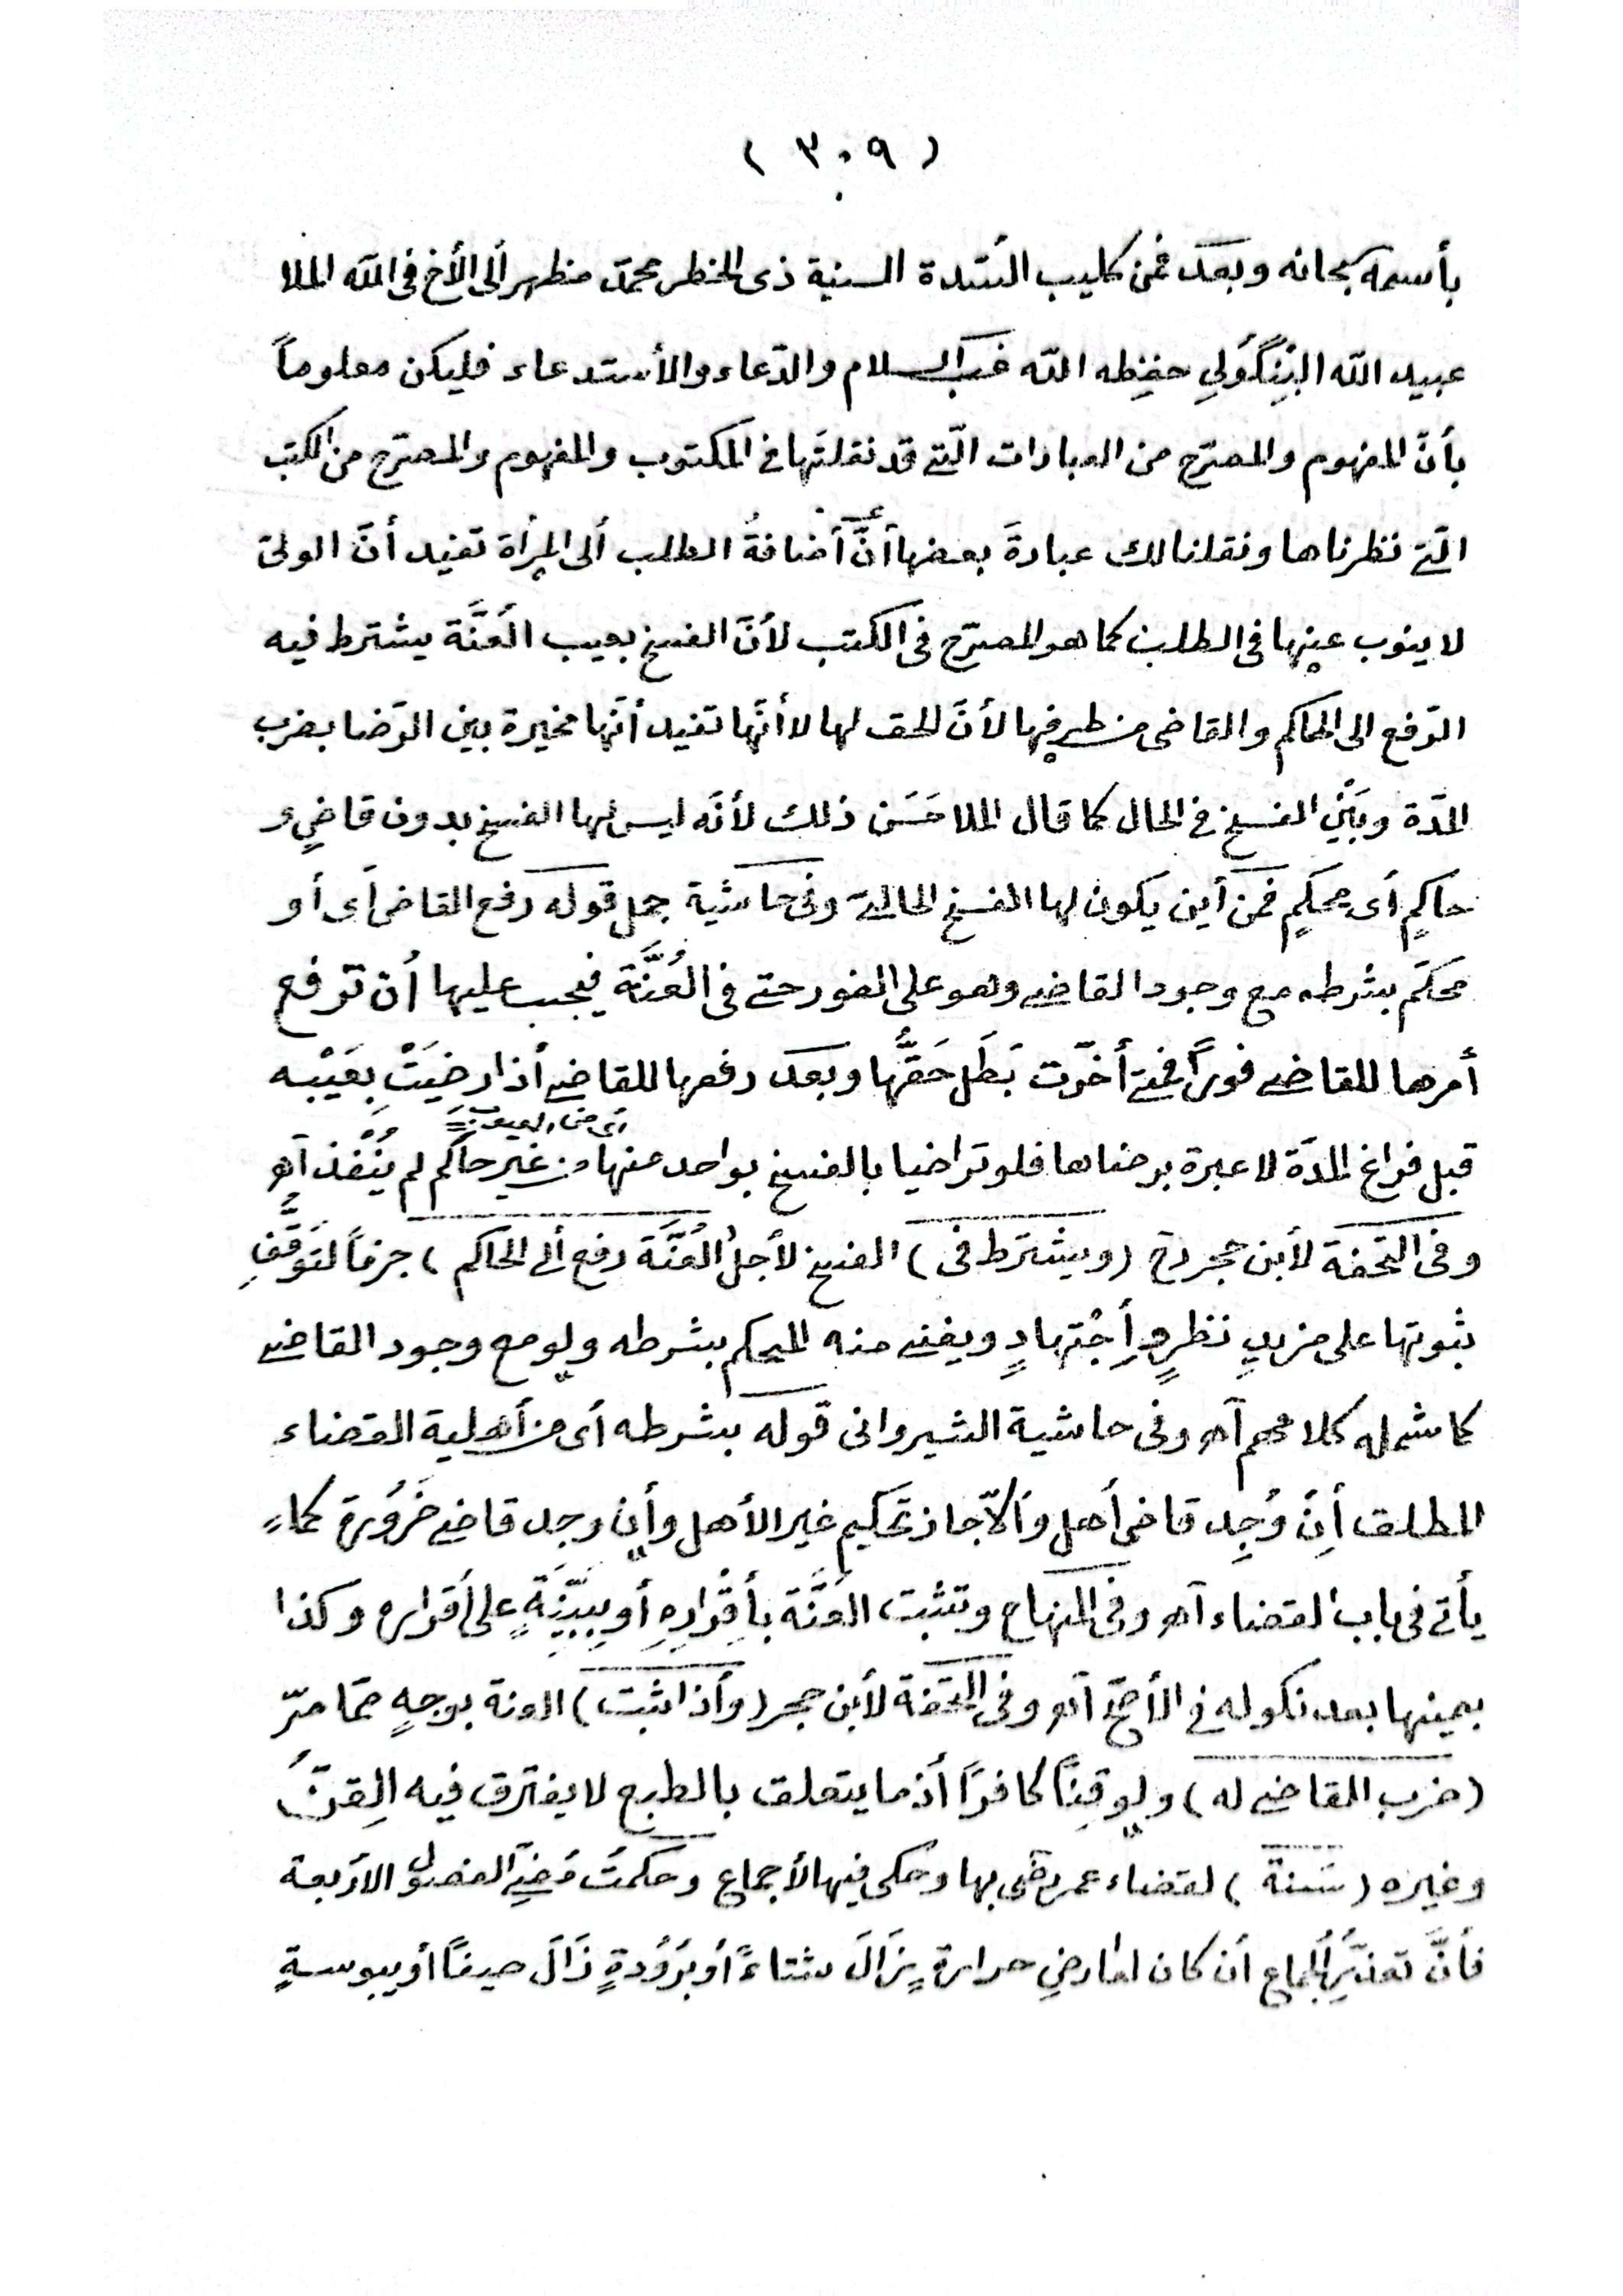 ( ٣٠٩ )
بأسمه سبحانه وبعد فمن كليب السّدة السنية ذى الخطر محمد مظهر ألى الأخ فى الله الملا
عبيد الله البِنْگَولِي حفِظه الله غب السلام والدّعاء والأستدعاء فليكن معلوماً
بأنّ المفهوم والمصرّح من العبارات الّتى قد نقلتَها فى المكتوب والمفهوم والمصرّح من الكتب
الّتى نظرناها ونقلنا لك عبارةَ بعضها أنَّ أضافةُ الطلب ألى المرأة تفيد أنّ الولىّ
لا ينوب عنها فى الطلب كما هو المصرّح فى الكتب لأنّ الفسخ بعيب العُنَّة يشترط فيه
الرّفع الى الحاكم والقاضى من طرفها لأنّ الحق لها لا أنّها تفيد أنّها مخيرة بين الرّضا بضرب
المدّة وبَيْن الفسخ فى الحال كما قال الملا حَسَن ذلك لأنّه ليس لها الفسخ بدون قاضٍ و
حاكمٍ أى محكمٍ فمن أين يكون لها الفسخ الحالىّ وفى حاشية جمل قوله رفع القاضى أى أو
محكّم بشرطه مع وجود القاضى وهو على الفور حتى فى العُنَّة فيجب عليها أن ترفع
أمرها للقاضى فوراً فمتى أخّرت بَطَل حَقُّها وبعد رفعها للقاضى أذا رضيَتْ بِعَيْبه
أى من العيوب
قبل فراغ المدّة لا عبرة برضاها فلو تراضيا بالفسخ بواحد منها من غير حاكم لم يُنْفذ آه
وفى التحفة لأبن حجر (ويشترط فى) الفسخ لأجل العُنَّة رفع ألى الحاكم ) جزماً لتوَقُّفِ
ثبوتها على مزيدِ نظرٍ وأِجْتهادٍ ويغنى منه المحكم بشرطه ولو مع وجود القاضى
كما شمله كلامهم آه وفى حاشية الشيروانى قوله بشرطه أى من أهلية القضاء
المطلق أِنْ وُجِد قاضى أهل وألاّ جاز تحكيم غير الأهل وأن وجد قاضى ضَرُورة كما
يأتى فى باب القضاء آه وفى المنهاج وتثبت العُنَّة بأِقْرارِهِ أو ببيّنةٍ على أقراره وكذا
بيمينها بعد نكوله فى الأصحّ آه وفى التحفة لأبن حجر (وأذا ثبت) العنة بوجهٍ ممّا مرّ
(ضرب القاضى له) ولو قِنّاً كافراً أذ ما يتعلق بالطبع لا يفترق فيه القِنّ
وغيره (سَنة) لقضاء عمر بها وحكى فيها الأجماع وحكمتُ مُضِىّ الفصول الأربعة
فأنّ تعذّر الجماع أن كان لعارضِ حرارةٍ زَالَ شتاءً أو برُودةٍ زَالَ صيفاً أو يبوسةٍ